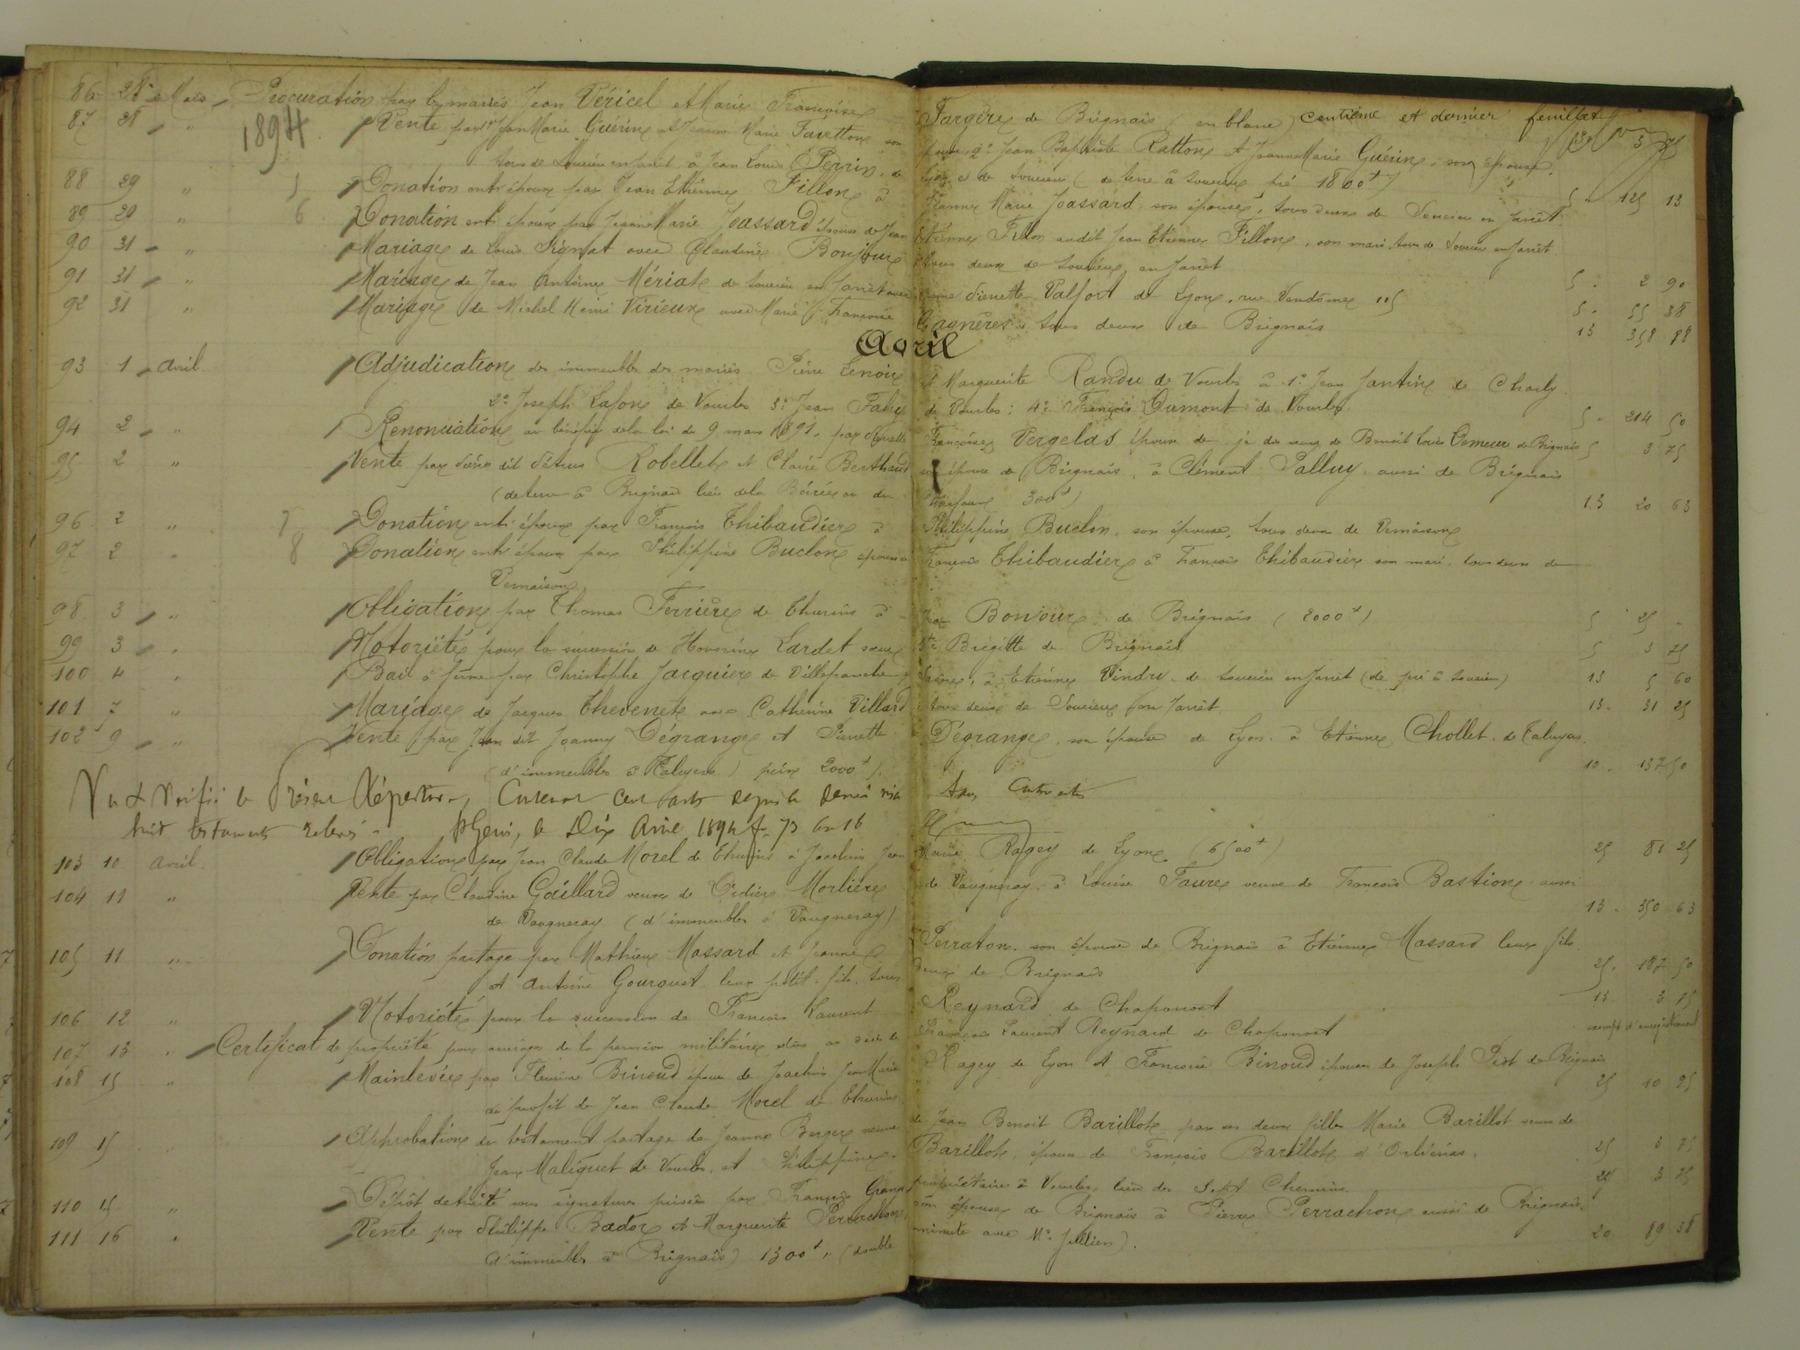 86 28 Mars Procuration par les mariés Jean Véricel et Marie Françoise Fargère de Brignais (en blanc) centième et dernier feuillet 3 75
1894
87 28 " Vente par 1° Jean Marie Guérin et Jeanne Marie Favetton son épouse 2° Jean Baptiste Ratton et Jeanne Marie Guérin, son épouse,
tous de Soucieu en Jarret à Jean Louis Perrin, de Soucieu (de terre à Soucieu pré 1800f) 5 " 125 13
88 29 " 5 Donation entre époux par Jean Etienne Fillon à Jeanne Marie Joassard son épouse, tous deux de Soucieu en Jarret
89 29 " 6 Donation entre époux par Jeanne Marie Joassard épouse de Jean Etienne Fillon audit Jean Etienne Fillon, son mari tous de Soucieu en Jarret
90 31 " Mariage de Louis avec Claudine Bonjour tous deux de Soucieu en Jarret 5 " 2 90
91 31 " Mariage de Jean Antoine Mériat de Soucieu en Jarret avec Pierrette Valfort de Lyon, rue Vendôme 115 5 " 55 38
92 31 " Mariage de Michel Rémi Virieux avec Marie Françoise Gagnères tous deux de Brignais 15 358 88
Avril
93 1 avril Adjudication des immeubles des mariés Pierre Lenoir et Marguerite Randu de Vourles à 1° Jean Jantin de Charly
2° Joseph Lafon de Vourles 3° Jean Fahy de Vourles; 4° François Dumont de Vourles 5 " 214 50
94 2 " Renonciation au bénéfice de la loi du 9 mars 1891, par Françoise Vergelas épouse de Benoit Louis de Brignais 5 3 75
95 2 " Vente par dit Pétrus Robellet et Claire Berthaud son épouse de Brignais, à Clément Palluy aussi de Brignais
(de terre à Brignais lieu de la ou du 300f) 15 20 63
96 2 " 7 Donation entre époux par François Thibaudier à Philippine Buclon, son épouse, tous deux de Vernaison
97 2 " 8 Donation entre époux par Philippine Buclon épouse de François Thibaudier à François Thibaudier son mari tous deux de
Vernaison
98 3 " Obligation par Thomas Ferrière de Thurins à Bonjour de Brignais (2000f) 5 25 "
99 3 " Notoriété pour la succession de Honorine Lardet sœur Ste Brigitte de Brignais 5 3 75
100 4 " Bail à ferme par Christophe Jacquier de Villefranche à Etienne Vindry de Soucieu en Jarret (de pré à Soucieu) 15 5 60
101 7 " Mariage de Jacques Thevenet avec Catherine Villard tous deux de Soucieu en Jarret 15 " 31 25
102 9 " Vente par Jean dit Joanny Dégrange et Pierrette Dégrange, son épouse de Lyon à Etienne Chollet de Taluyers
(d'immeubles à Taluyers) prix 2000f 10 " 137 50
Vu et Vérifié le Présent Répertoire, cent actes depuis le dernier visa
huit testaments St Genis, le Dix Avril 1894 f. 73 Ce 16
103 10 avril Obligation par Jean Claude Morel de Thurins à Joachim Jean Marie Ragey de Lyon (6500f) 25 81 25
104 11 " Vente par Claudine Gaillard veuve de Didier Morlière de Vaugneray à Louise Faure veuve de François Bastion aussi
de Vaugneray (d'immeubles à Vaugneray) 15 " 350 63
105 11 " Donation partage par Mathieu Massard et Jeanne Perraton son épouse de Brignais à Etienne Massard leur fils
et Antoine Gourguet leur petit-fils, tous deux de Brignais 25 " 187 50
106 12 " Notoriété pour la succession de François Laurent Reynard de Chaponost 15 3 75
107 13 " Certificat de propriété pour arrérages de la pension militaire due au décès de François Laurent Reynard de Chaponost exempt d'enregistrement
108 15 " Mainlevée par Fleurine Binoud épouse de Joachim Jean Marie Ragey de Lyon et Françoise Binoud épouse de Joseph de Brignais
au profit de Jean Claude Morel de Thurins 25 10 25
109 15 " Approbation du testament partage de Jeanne Berger veuve de Jean Benoit Barillot par ses deux filles Marie Barillot veuve de
Jean Maliguet de Vourles et Philippine Barillot, épouse de François Barillot d'Orliénas. 25 3 75
110 15 " Dépôt de traité sous signatures privées par François Grange propriétaire à Vourles, lieu des Sept Chemins 25 3 75
111 16 " Vente par Philippe Bador et Marguerite Perrachon son épouse de Brignais à Pierre Perrachon aussi de Brignais
(d'immeubles à Brignais) 1300f " (double minute avec Me Jullien). 20 89 38